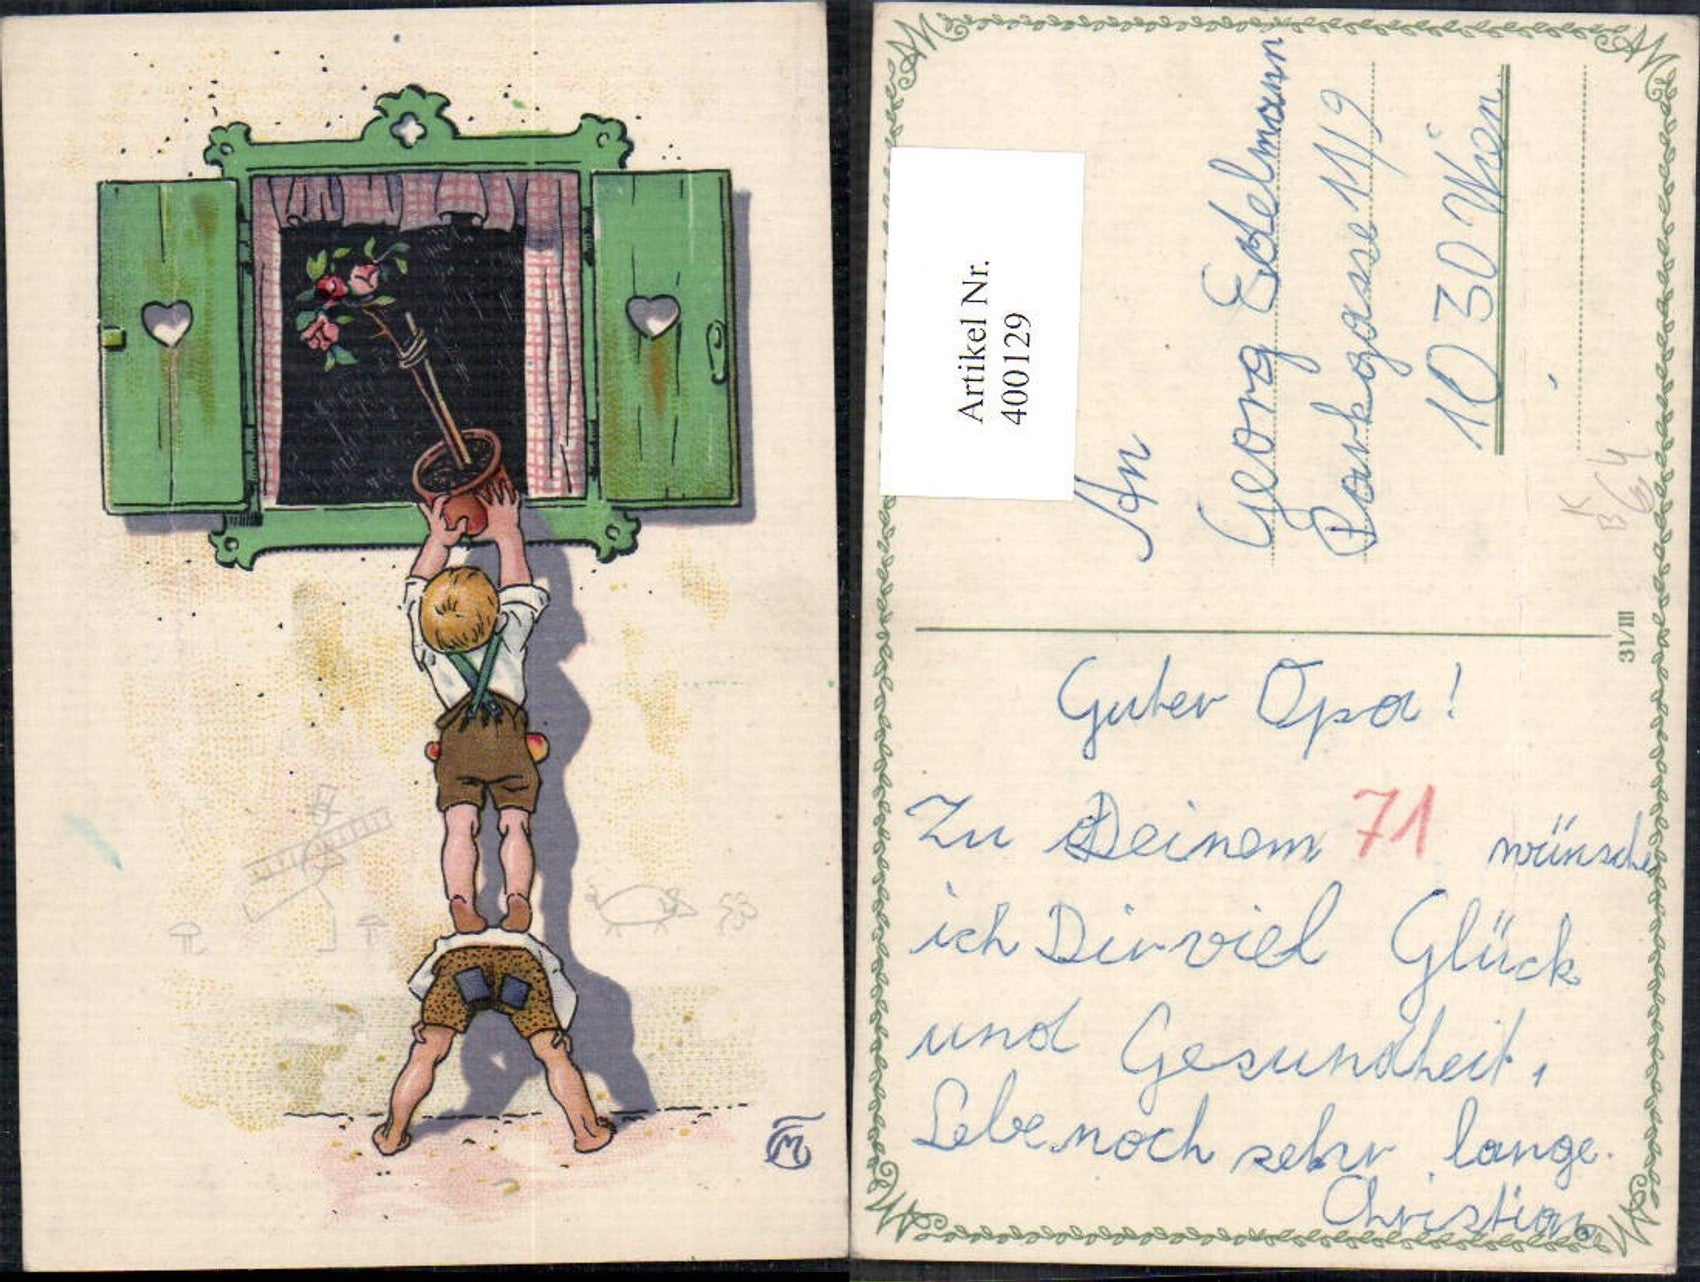 Artikel Nr.
400129
An
Georg Edelmann
Parkgasse 11/9
1030 Wien
31/III
Guter Opa!
Zu Deinem 71 wünsche
ich Dir viel Glück
und Gesundheit,
Lebe noch sehr lange.
Christian